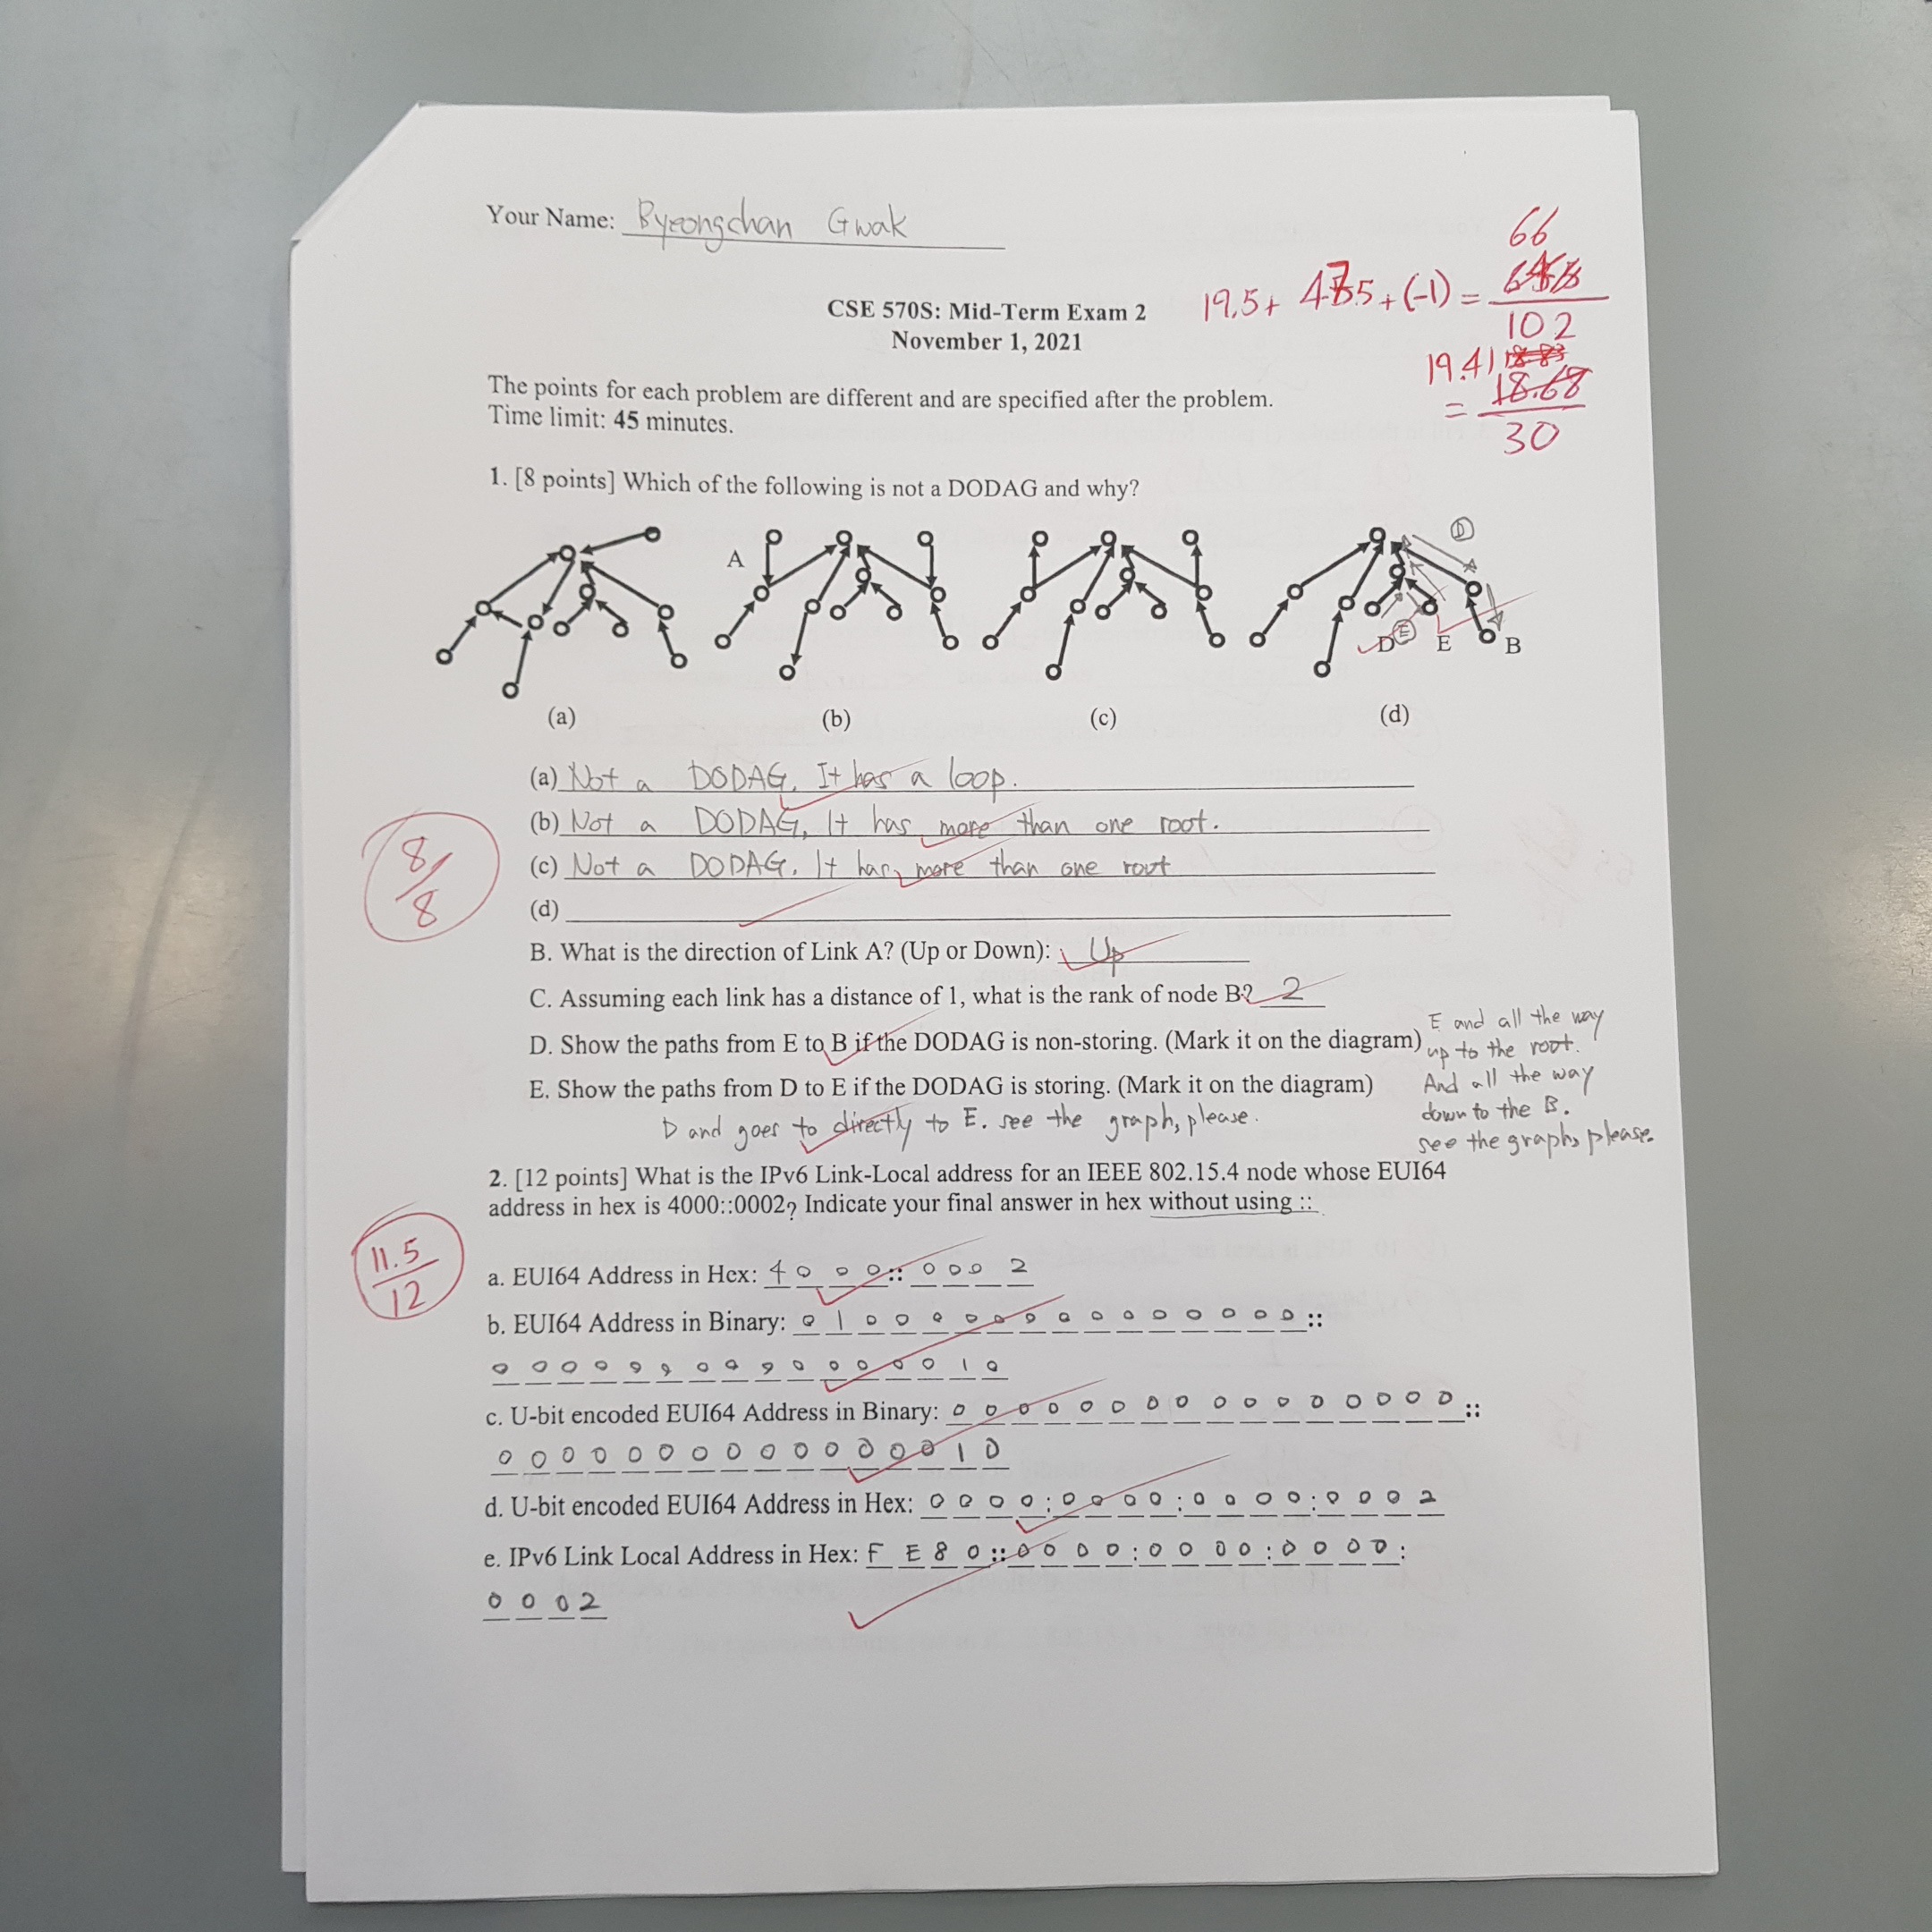 Your Name: Byeongchan Gwak
66
19.5+ 47.5+(-1) =
102
CSE 570S: Mid-Term Exam 2
November 1, 2021
19.41
18.68
=
30
The points for each problem are different and are specified after the problem.
Time limit: 45 minutes.
1. [8 points] Which of the following is not a DODAG and why?
D
A
D E E B
(a) (b) (c) (d)
(a) Not a DODAG. It has a loop.
(b) Not a DODAG, It has more than one root.
(c) Not a DODAG. It has more than one root
8/8
(d)
B. What is the direction of Link A? (Up or Down): Up
C. Assuming each link has a distance of 1, what is the rank of node B? 2
D. Show the paths from E to B if the DODAG is non-storing. (Mark it on the diagram)
E and all the way
up to the root.
And all the way
down to the B.
see the graph, please.
E. Show the paths from D to E if the DODAG is storing. (Mark it on the diagram)
D and goes to directly to E. see the graph, please.
2. [12 points] What is the IPv6 Link-Local address for an IEEE 802.15.4 node whose EUI64
address in hex is 4000::0002? Indicate your final answer in hex without using ::
11.5/12
a. EUI64 Address in Hex: 4 0 0 0:: 0 0 0 2
b. EUI64 Address in Binary: 0 1 0 0 0 0 0 0 0 0 0 0 0 0 0 0::
0 0 0 0 0 0 0 0 0 0 0 0 0 0 1 0
c. U-bit encoded EUI64 Address in Binary: 0 0 0 0 0 0 0 0 0 0 0 0 0 0 0 0::
0 0 0 0 0 0 0 0 0 0 0 0 0 0 1 0
d. U-bit encoded EUI64 Address in Hex: 0 0 0 0:0 0 0 0:0 0 0 0:0 0 0 2
e. IPv6 Link Local Address in Hex: F E 8 0::0 0 0 0:0 0 0 0:0 0 0 0:
0 0 0 2